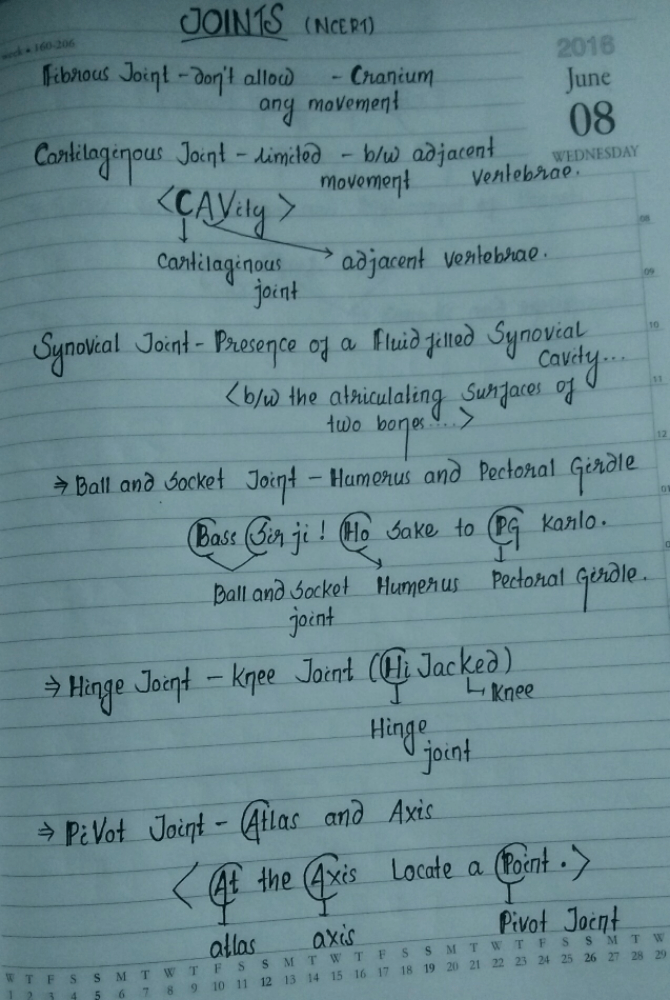 JOINTS (NCERT)
week • 160-206
2016
June
08
WEDNESDAY
Fibrous Joint - don't allow - Cranium
any movement
Cartilaginous Joint - limited - b/w adjacent
movement vertebrae.
<CAVity>
Cartilaginous adjacent vertebrae.
joint
Synovial Joint - Presence of a Fluid filled Synovial
Cavity...
<b/w the atriculating surfaces of
two bones....>
⇒ Ball and Socket Joint - Humerus and Pectoral Girdle
Bass Sir ji! Ho Sake to PG Karlo.
Ball and Socket Humerus Pectoral Girdle.
joint
⇒ Hinge Joint - Knee Joint (Hi Jacked)
Knee
Hinge
joint
⇒ PiVot Joint - Atlas and Axis
<At the Axis Locate a Point.>
atlas axis Pivot Joint
W T F S S M T W T F S S M T W T F S S M T W T F S S M T W
1 2 3 4 5 6 7 8 9 10 11 12 13 14 15 16 17 18 19 20 21 22 23 24 25 26 27 28 29
08
09
10
11
12
01